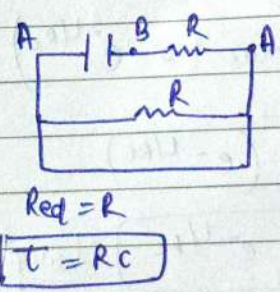 A B R A
R
Req = R
τ = RC